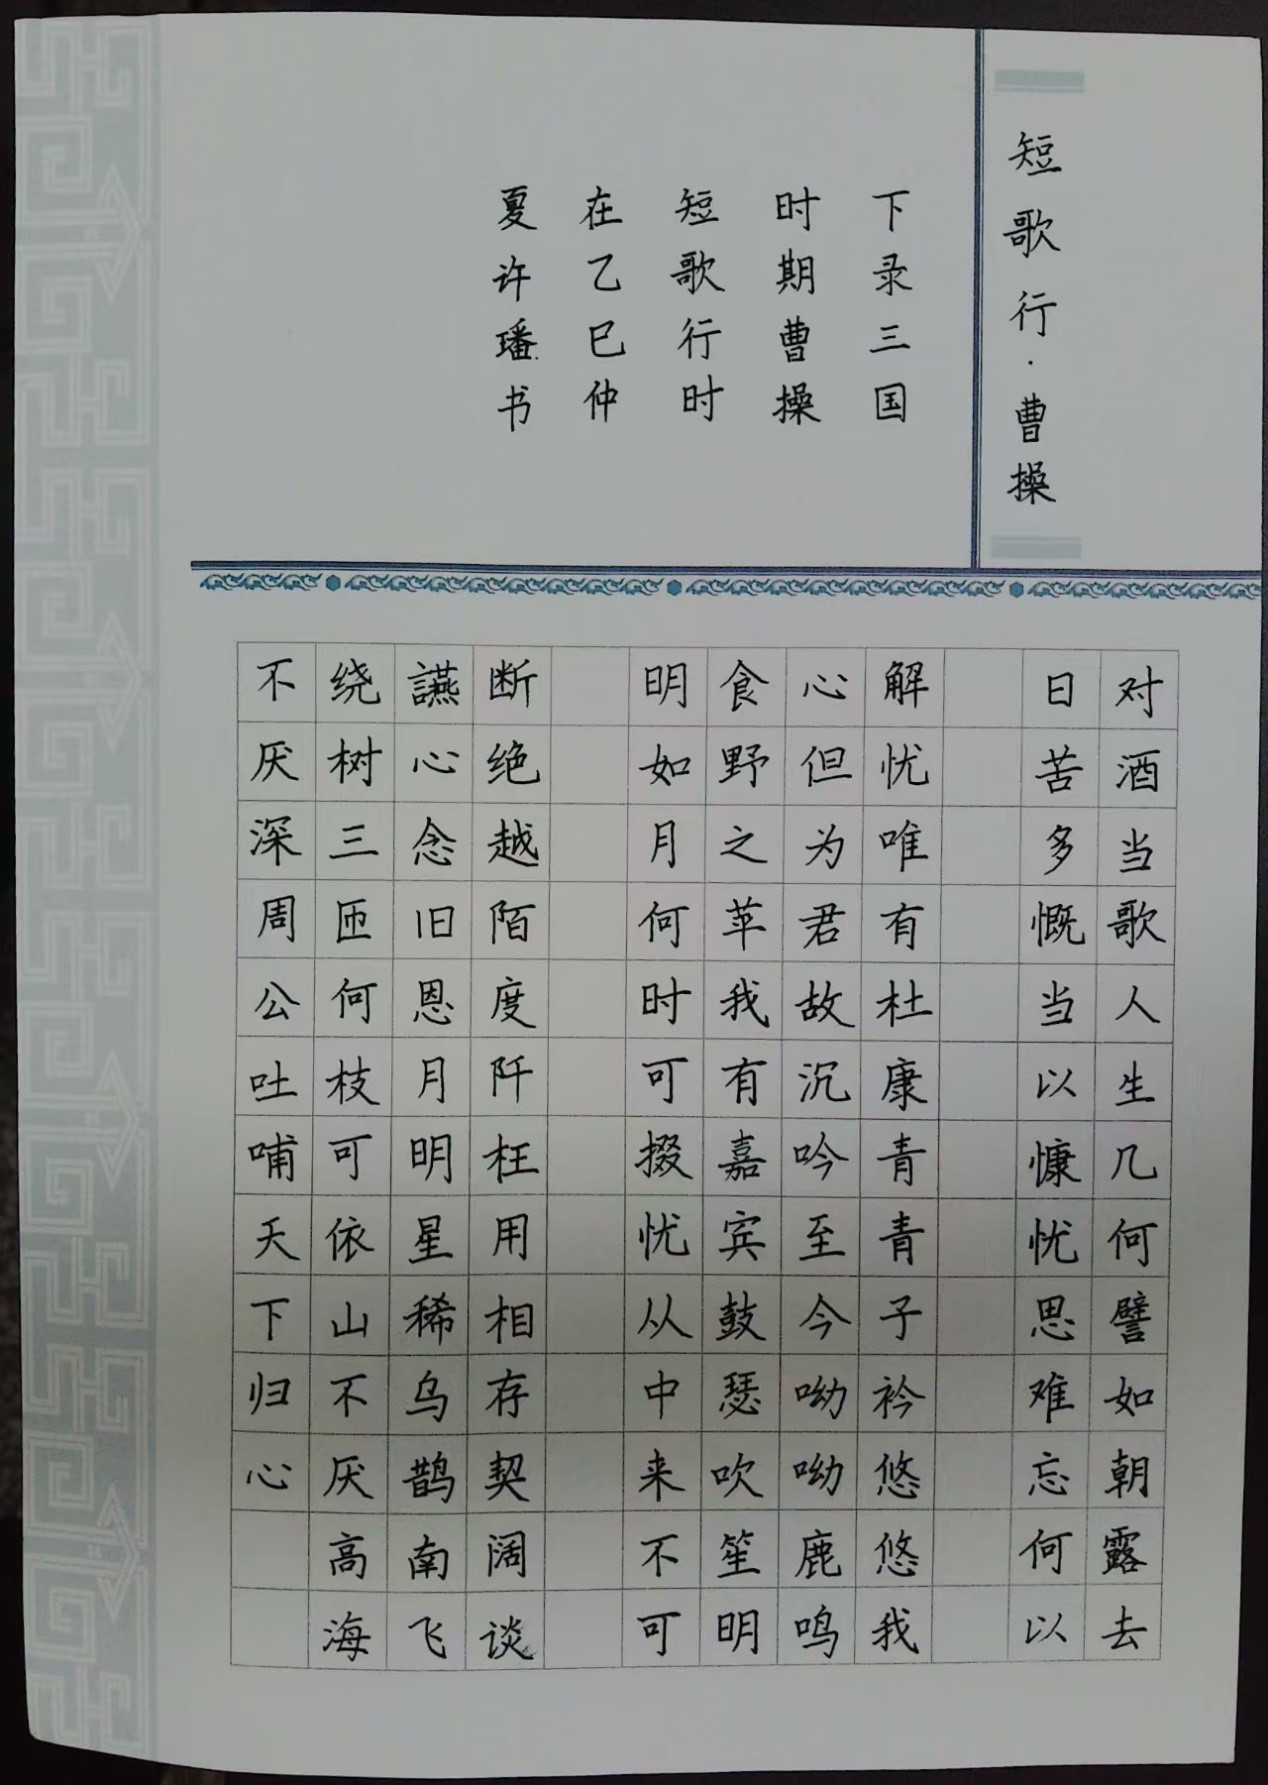 短歌行·曹操
下录三国
时期曹操
短歌行时
在乙巳仲
夏许璠书
对酒当歌人生几何譬如朝露去
日苦多慨当以慷忧思难忘何以
解忧唯有杜康青青子衿悠悠我
心但为君故沉吟至今呦呦鹿鸣
食野之苹我有嘉宾鼓瑟吹笙明
明如月何时可掇忧从中来不可
断绝越陌度阡枉用相存契阔谈
讌心念旧恩月明星稀乌鹊南飞
绕树三匝何枝可依山不厌高海
不厌深周公吐哺天下归心